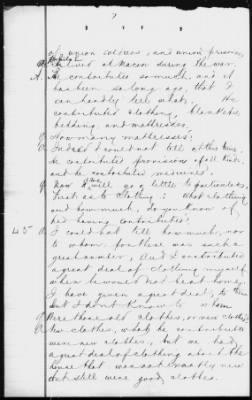 7
of union soldiers, and union prisoners
lived at Macon during the war.
A. He contributed so much, and it
has been so long ago, that I
can hardly tell what. He
contributed clothing, blankets,
bedding, and mattresses.
Q How many mattresses?
A Indeed I could not tell at this time.
He contributed provisions of all kinds,
and he contributed medicines.
Q Now We will go a little to particulars,
first as to clothing: what clothing
and how much, do you know of
his having contributed?
45 A I could not tell how much, nor
to whom for there was such a
great number, and I contributed
a great deal of clothing myself
when he was not at home.
I have given a great deal, to them
but I don't know to whom
Q Were those old clothes, or new clothes?
A New clothes, what he contributed
were new clothes, but we had
a great deal of clothing about the
house that was not exactly new
but still were good clothes.